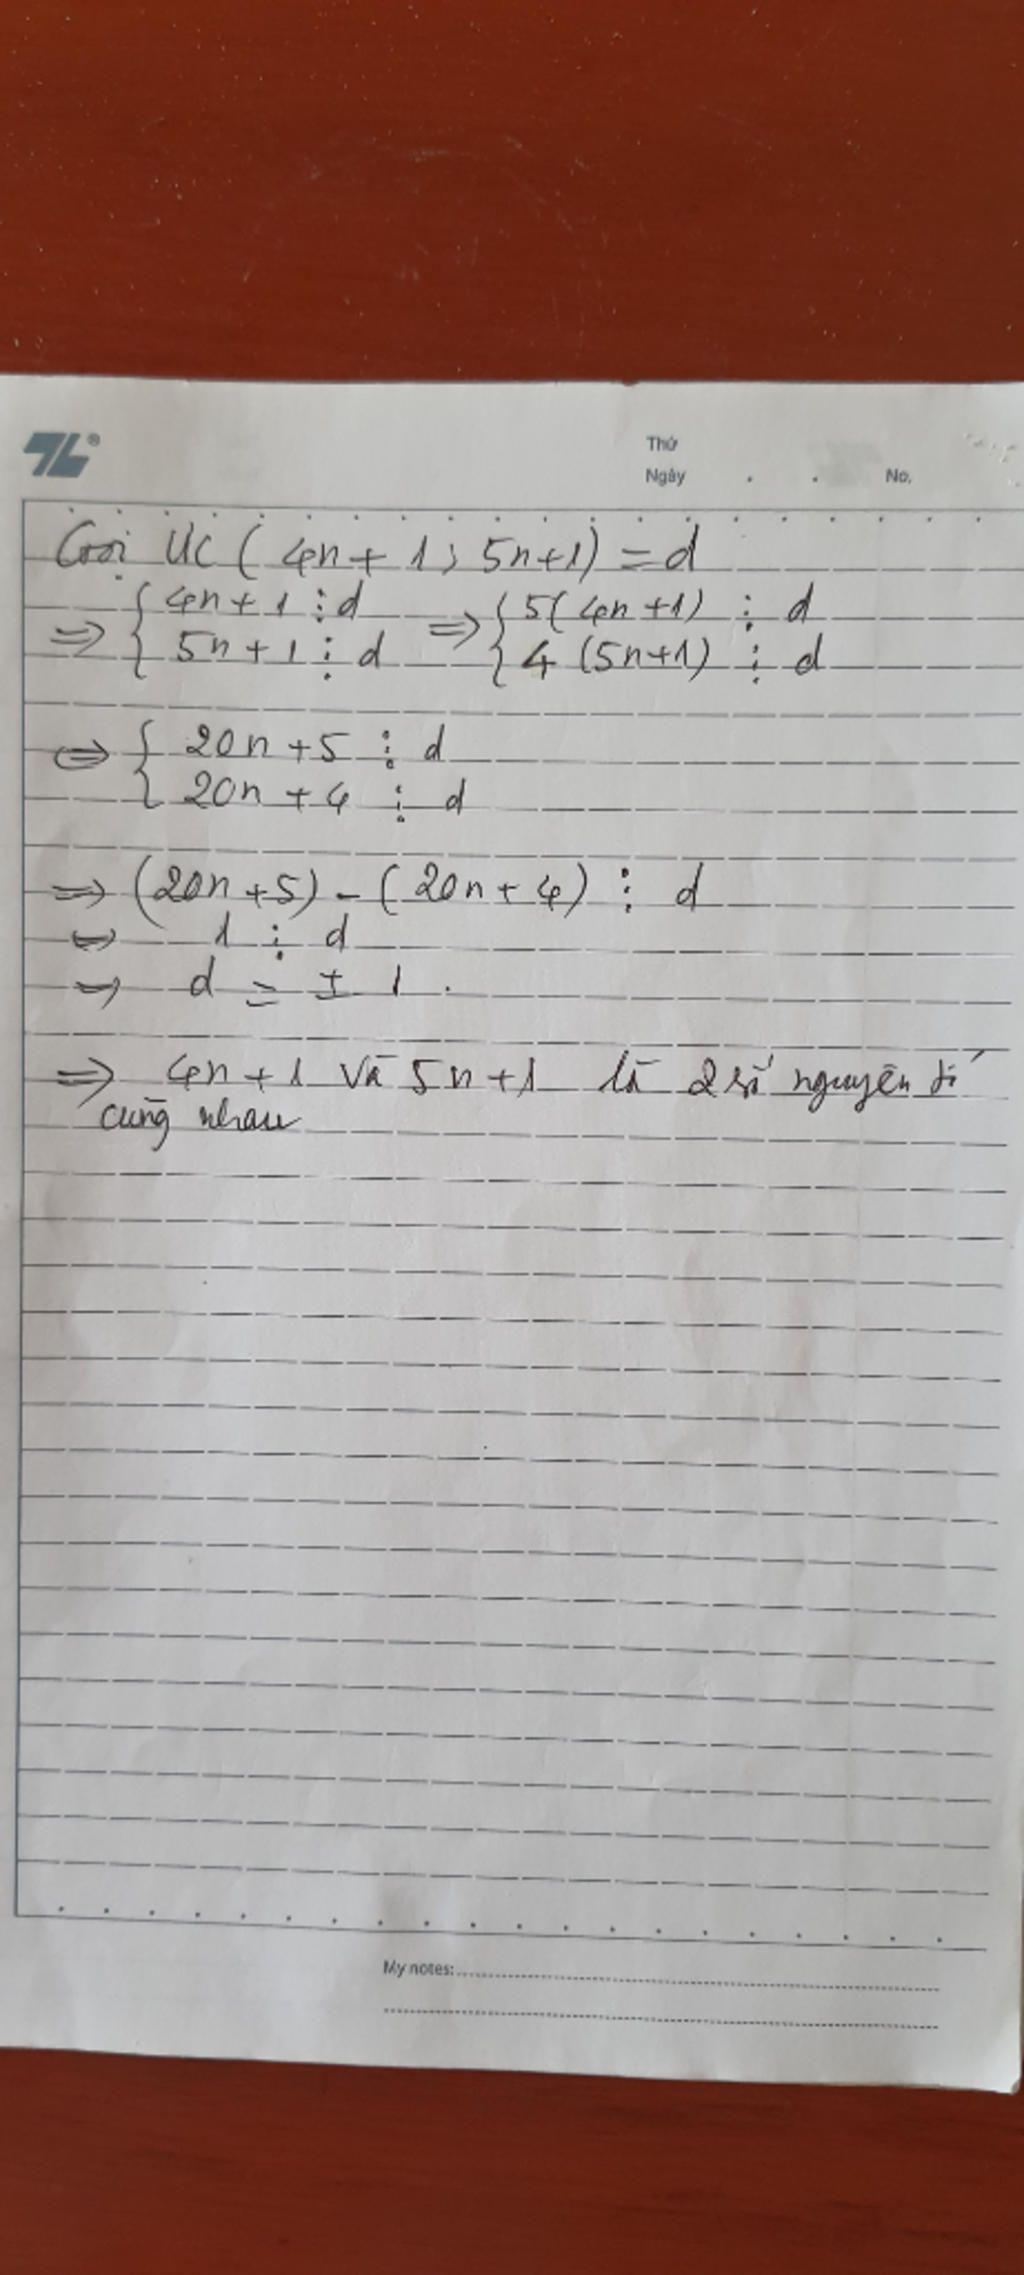 TL®
Thứ
Ngày . . No.
Gọi ƯC ( 4n + 1 ; 5n+1) = d
=> { 4n + 1 ⋮ d => { 5(4n +1) ⋮ d
{ 5n + 1 ⋮ d { 4 (5n+1) ⋮ d
<=> { 20n + 5 ⋮ d
{ 20n + 4 ⋮ d
=> (20n + 5) - ( 20n + 4) ⋮ d
<=> 1 ⋮ d
=> d = ± 1 .
=> 4n + 1 và 5n + 1 là 2 số nguyên tố
cùng nhau
My notes: